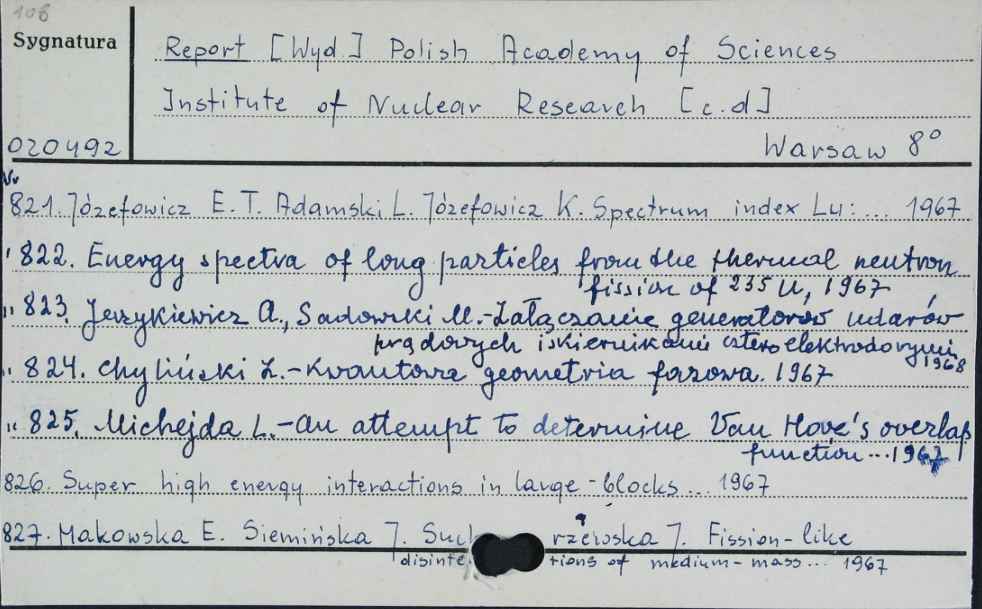 108
Sygnatura
Report [Wyd.] Polish Academy of Sciences
Institute of Nuclear Research [c.d]
020492
Warsaw 8°
Nr
821. Józefowicz E. T. Adamski L. Józefowicz K. Spectrum index Lu: ... 1967
" 822. Energy spectra of long particles from the thermal neutron
fission of 235 U, 1967
" 823. Jerzykiewicz A., Sadowski M.-Załączanie generatorów udarów
prądowych iskiernikami czteroelektrodowymi
1968
" 824. Chyliński Z.-Kwantowa geometria fazowa. 1967
" 825. Michejda L.-An attempt to determine Van Hove's overlap
function ... 1967
826. Super high energy interactions in large-blocks ... 1967
827. Makowska E. Siemińska J. Suc rzewska J. Fission-like
disinte tions of medium-mass ... 1967